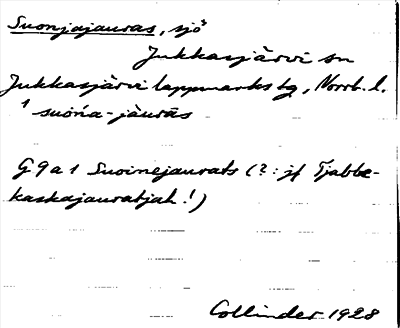 Suonjajauras, sjö
Jukkasjärvi sn
Jukkasjärvi lappmarks tg, Norrb. l.
1 suońa-jàurās
G9a1 Suoinejaurats (?: jf Tjabbe-
kaskajauratjah!)
Collinder 1928